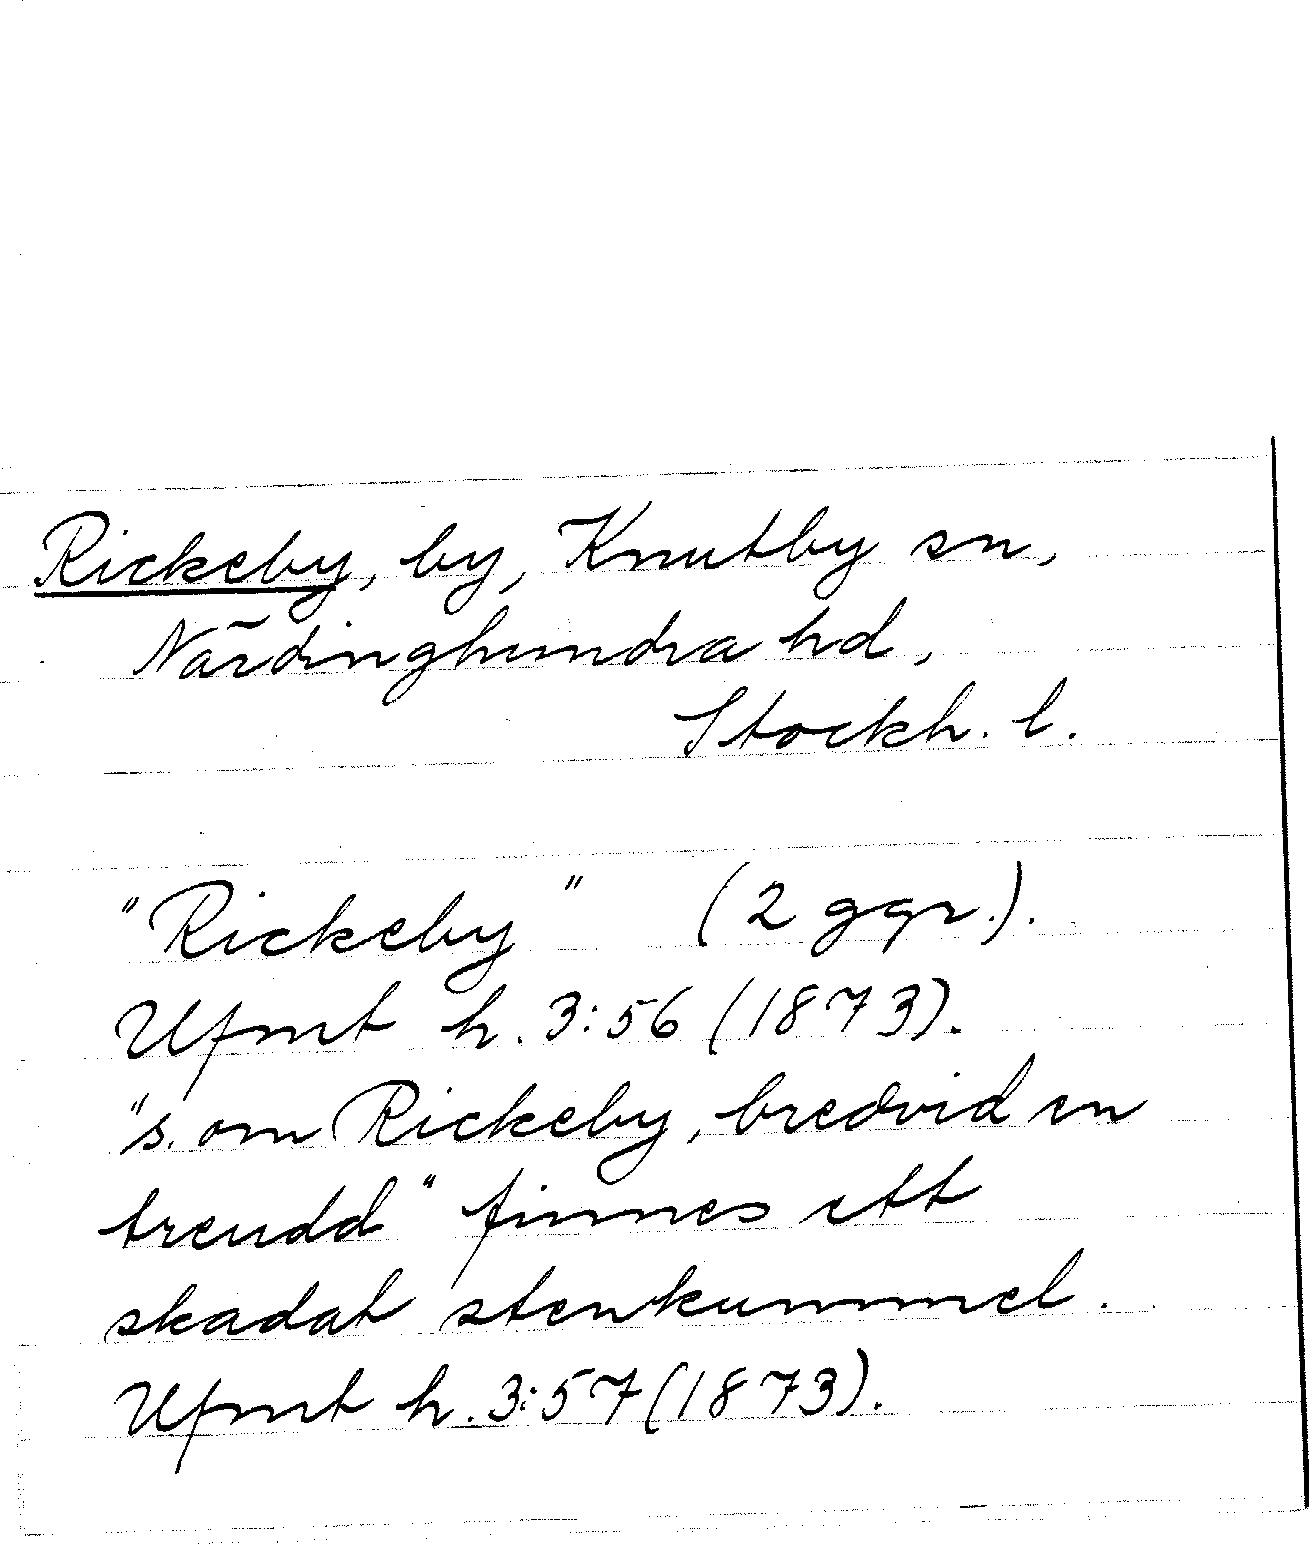 Rickeby, by, Knutby sn,
Närdinghundra hd,
Stockh. l.
"Rickeby" (2 ggr.).
Ufmt h. 3:56 (1873).
"s. om Rickeby, bredvid en
treudd" finnes ett
skadat stenkummel.
Ufmt h. 3:57 (1873).